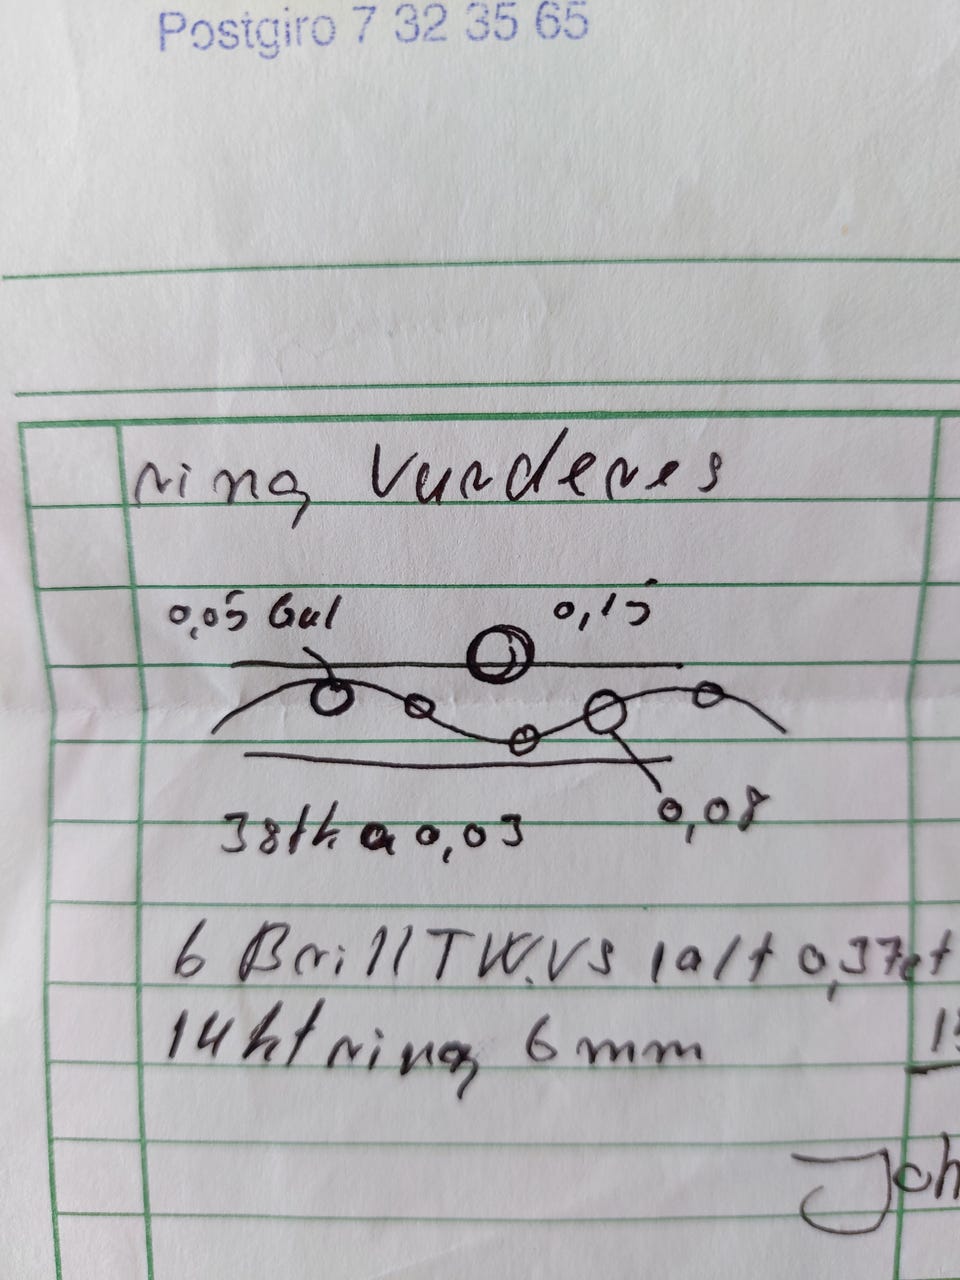 Postgiro 7 32 35 65
ring Vurderes
0,05 Gul
0,15
0,08
3 8/h a 0,03
6 Brill TW.VS ialt 0,37ct
14 kt ring 6 mm
Joh